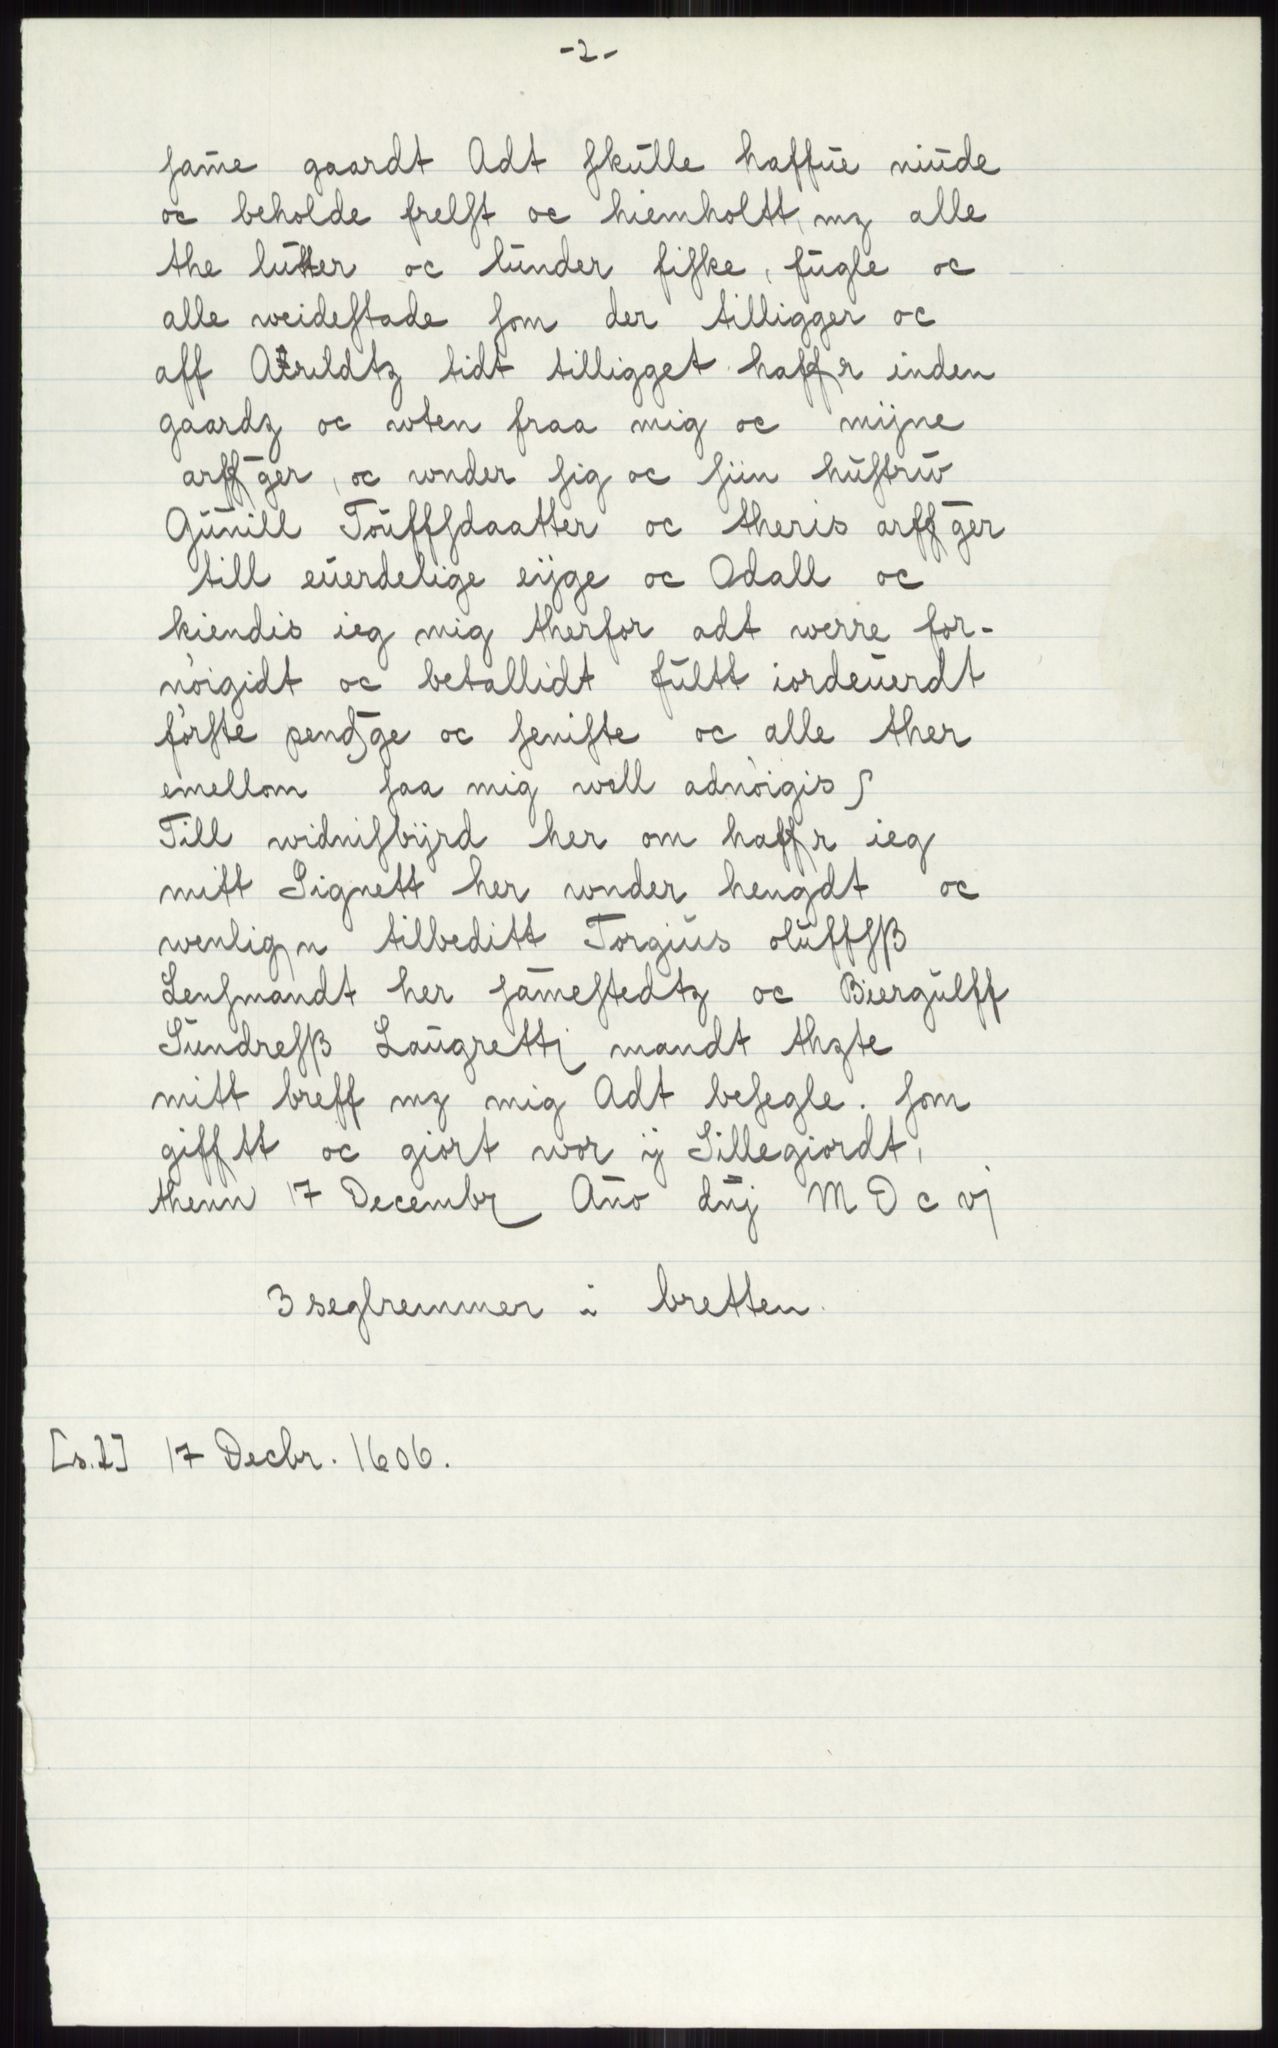 -2-
ſam̄e gaardt Adt ſkŭlle haffŭe niŭde
oc beholde frelſt oc hiemholtt, mꝫ alle
the lŭtter oc lŭnder fiſke, fŭgle oc
alle weideſtade ſom der tilligger oc
aff Arildtz tidt tilligget haffr inden
gaardz oc wten fraa mig oc mijne
arff̄ger, oc wnder ſig oc ſiin hŭſtrŭ
Gŭnill Toŭffſdaatter oc theris arff̄ger
till eŭerdelige eijge oc Odall oc
kiendis ieg mig therfor adt werre for-
nóigidt oc betallidt fŭltt iordeŭerdt
fórſte pend̄ge oc ſeniſte oc alle ther
emellom ſaa mig woll adnóigis ʃ
Till widniſbijrd her om haffr ieg
mitt Signett her wnder hengdt oc
wenlign tilbeditt Torgiŭs olŭffſß
Lenſmandt her ſam̄eſtedtz oc Biergŭlff
Sŭndreſß Laŭgretti mandt thꝫte
mitt breff mꝫ mig Adt beſegle. ſom
gifftt oc giort wor ij Sillegiordt,
thenn 17 Decembr Año dn̄j M D c vj
3 seglremmer i bretten.
[s.2] 17 Decbr. 1606.